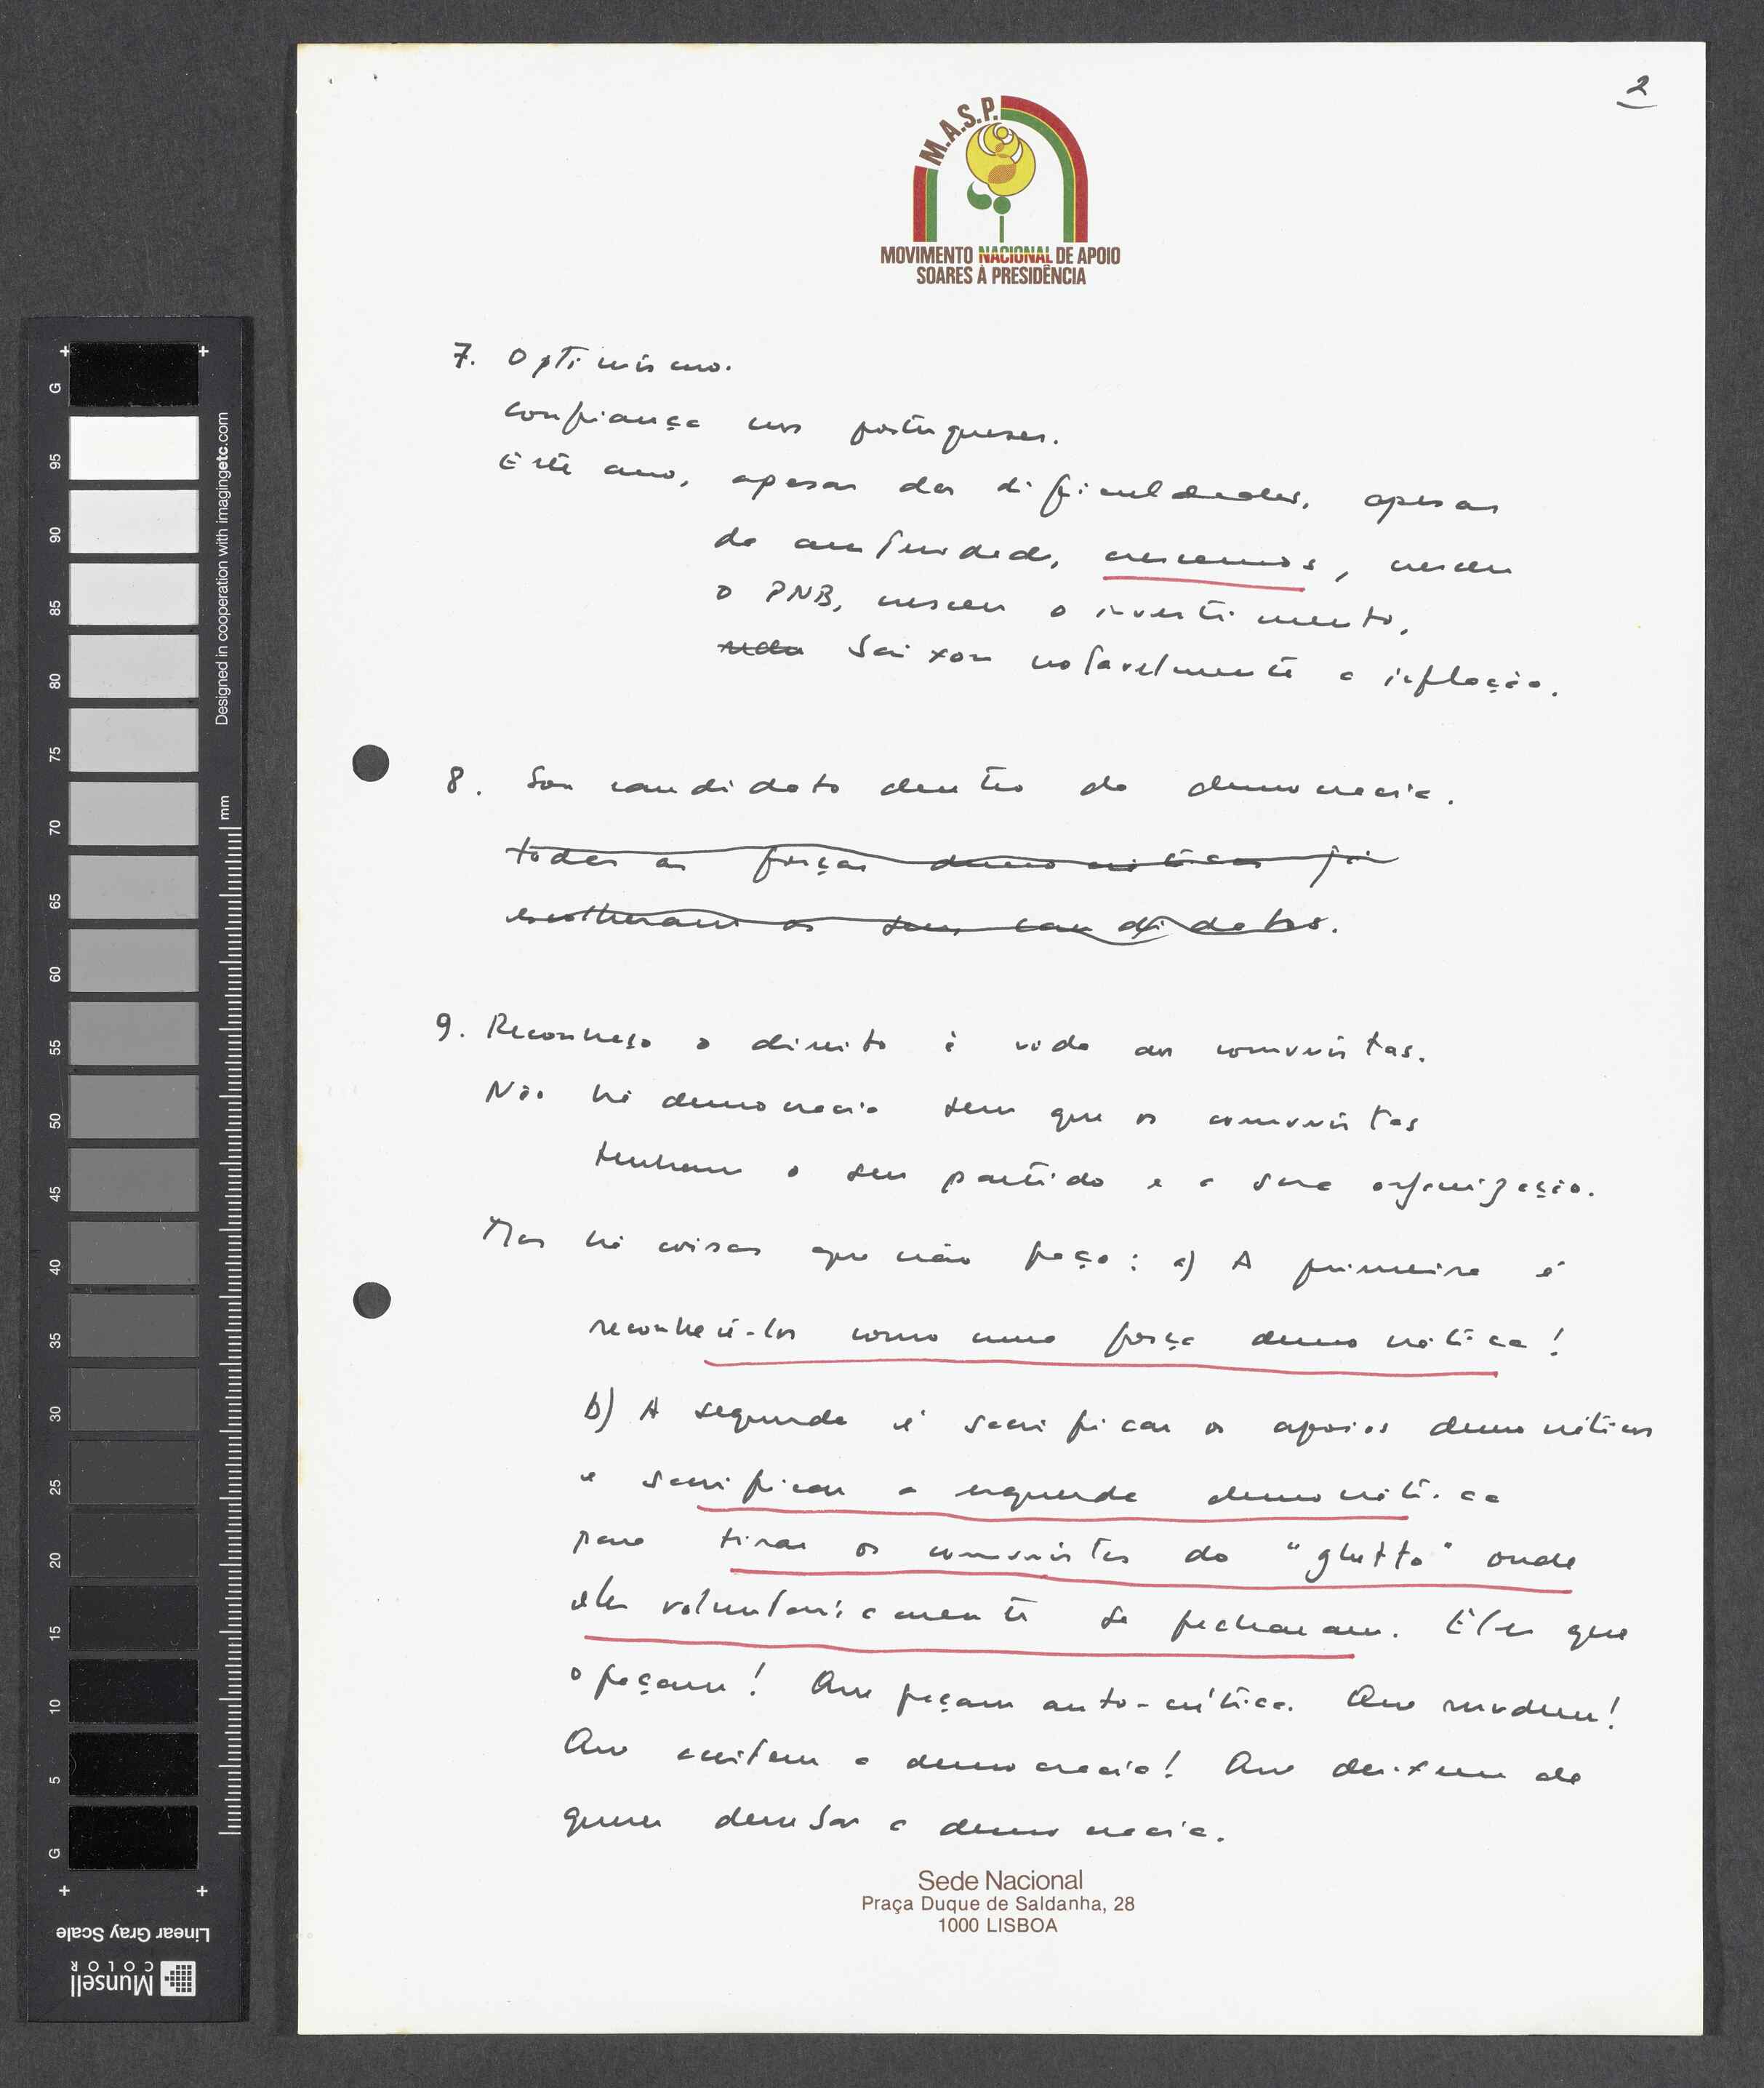 2
M.A.S.P.
MOVIMENTO NACIONAL DE APOIO
SOARES À PRESIDÊNCIA
7. Optimismo.
Confiança nos portugueses.
Este ano, apesar das dificuldades, apesar
da austeridade, crescemos, cresceu
o PNB, cresceu o investimento,
baixou notavelmente a inflação.
8. Sou candidato dentro da democracia.
todas as forças democráticas já
escolheram os seus candidatos.
9. Reconheço o direito à vida aos comunistas.
Não há democracia sem que os comunistas
tenham o seu partido e a sua organização.
Mas há coisas que não faço: a) A primeira é
reconhecê-los como uma força democrática!
b) A segunda é sacrificar os apoios democráticos
e sacrificar a esquerda democrática
para tirar os comunistas do "ghetto" onde
eles voluntariamente se fecharam. Eles que
o façam! Que façam auto-crítica. Que mudem!
Que aceitem a democracia! Que deixem de
querer derrubar a democracia.
Sede Nacional
Praça Duque de Saldanha, 28
1000 LISBOA
G
95
90
85
80
75
70
65
60
55
50
45
40
35
30
25
20
15
10
5
G
mm
Designed in cooperation with imagingetc.com
Linear Gray Scale
Munsell
COLOR